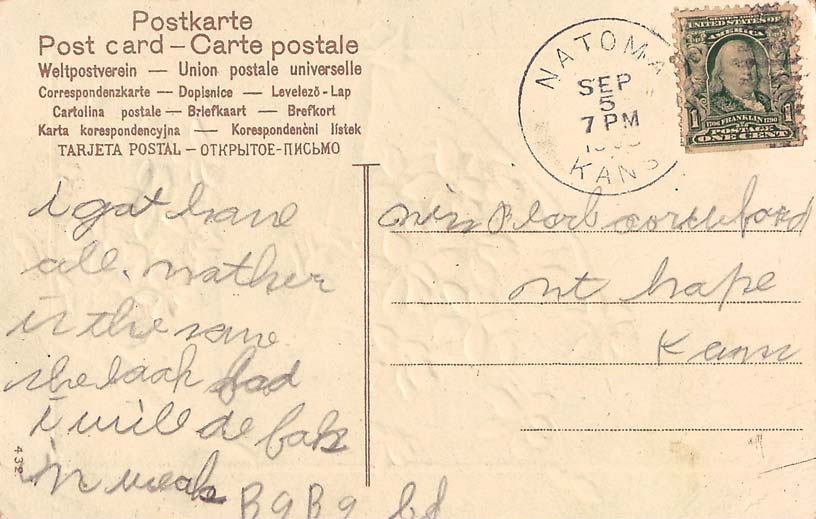 Postkarte
Post card – Carte postale
Weltpostverein — Union postale universelle
Correspondenzkarte — Dopisnice — Levelező-Lap
Cartolina postale — Briefkaart — Brefkort
Karta korespondencyjna — Korespondenční lístek
TARJETA POSTAL – ОТКРЫТОЕ-ПИСЬМО
NATOMA
SEP
5
7 PM
KANS
SERIES 1902
UNITED STATES OF
AMERICA
1 1
1706 FRANKLIN 1790
POSTAGE
ONE CENT
i gat hane
all. mather
is the same
she laak bad
i will be bak
in weak BgBg
miss Pearl
mt hape
Kans
432